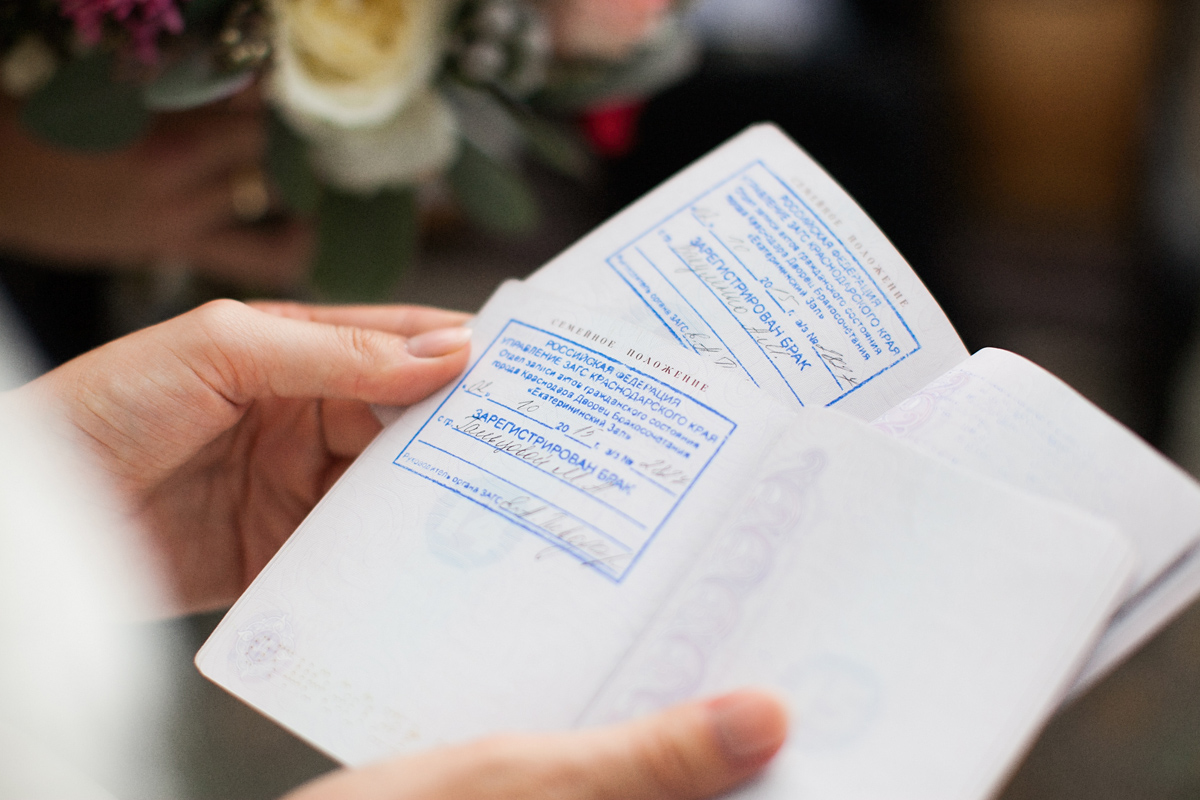 СЕМЕЙНОЕ ПОЛОЖЕНИЕ
РОССИЙСКАЯ ФЕДЕРАЦИЯ
УПРАВЛЕНИЕ ЗАГС КРАСНОДАРСКОГО КРАЯ
Отдел записи актов гражданского состояния
города Краснодара Дворец Бракосочетания
«Екатерининский Зал»
10 2015 г. а/з №
ЗАРЕГИСТРИРОВАН БРАК
с гр.
Руководитель органа ЗАГС
СЕМЕЙНОЕ ПОЛОЖЕНИЕ
РОССИЙСКАЯ ФЕДЕРАЦИЯ
УПРАВЛЕНИЕ ЗАГС КРАСНОДАРСКОГО КРАЯ
Отдел записи актов гражданского состояния
города Краснодара Дворец Бракосочетания
«Екатерининский Зал»
10 2015 г. а/з №
ЗАРЕГИСТРИРОВАН БРАК
с гр.
Руководитель органа ЗАГС